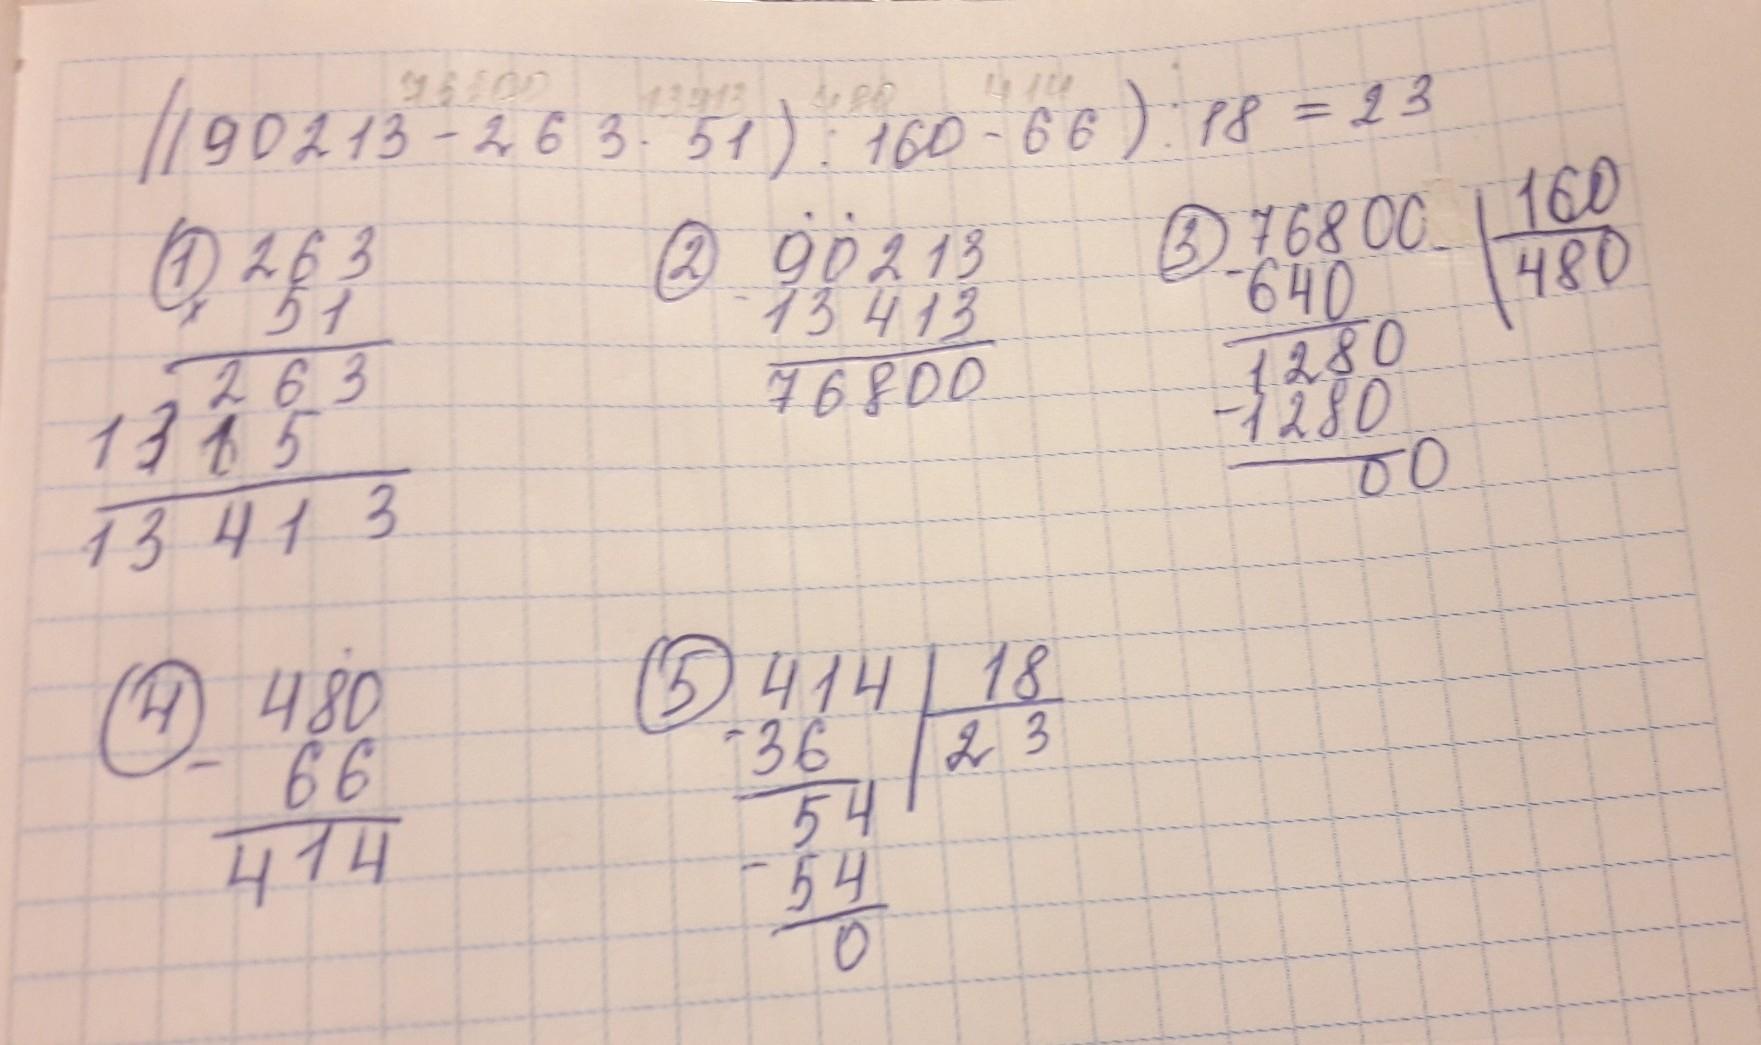 76800 13413 480 414
((90213 - 263 · 51) : 160 - 66) : 18 = 23
① 263
× 51
263
1315
13413
② 90213
- 13413
76800
③ 76800 | 160
- 640 | 480
1280
- 1280
00
④ 480
- 66
414
⑤ 414 | 18
- 36 | 23
54
- 54
0